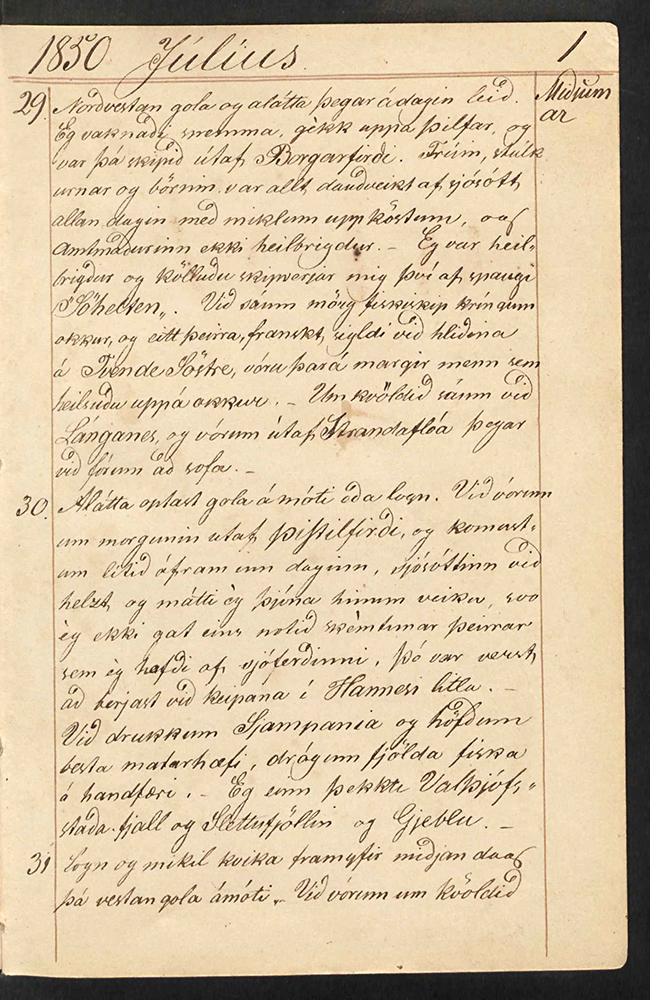 1850 Július. 1
29 Nordvestan gola og alátta þegar á dagin leid. Midsum
Eg vaknadi snemma, gékk uppá þilfar, og ar
var þá skipid útaf Borgarfirdi. Frúin, stúlk
urnar og börnin var allt daudveikt af sjósótt
allan dagin med miklum uppköstum, og
Amtmadurinn ekki heilbrigdur. – Eg var heil„
brigdur og kölludu skipverjar mig því af spaugi
"Söhesten„. Vid sáum mörg fiskiskip kríngum
okkur, og eitt þeirra, franskt, sigldi vid hlidena
á Tvende Söstre, vóru þará margir menn sem
heilsudu uppá okkur. – Um kvöldid sáum vid
Lánganes, og vórum útaf Strandaflóa þegar
vid fórum ad sofa. –
30. Alátta optast gola á móti eda logn. Vid vórum
um morgunin útaf þistilfirdi, og komust„
um litid áfram um daginn, sjósóttinn vid
helzt, og mátti èg þjéna hinum veiku, svo
èg ekki gat eins notid skémtunar þeirrar
sem èg hafdi af sjóferdinni, þó var verst
ad berjast vid keipana í Hannesi litla. –
Vid drukkum Sjampania og höfdum
besta matarhæfi, drógum fjölda fiska
á handfæri. – Eg einn þekkti Valþjófs„
stada fjall og Slettufjöllin og Gjeblu. –
31 Logn og mikil kvika framyfir midjan dag
þá vestan gola ámóti. Vid vórum um kvöldid